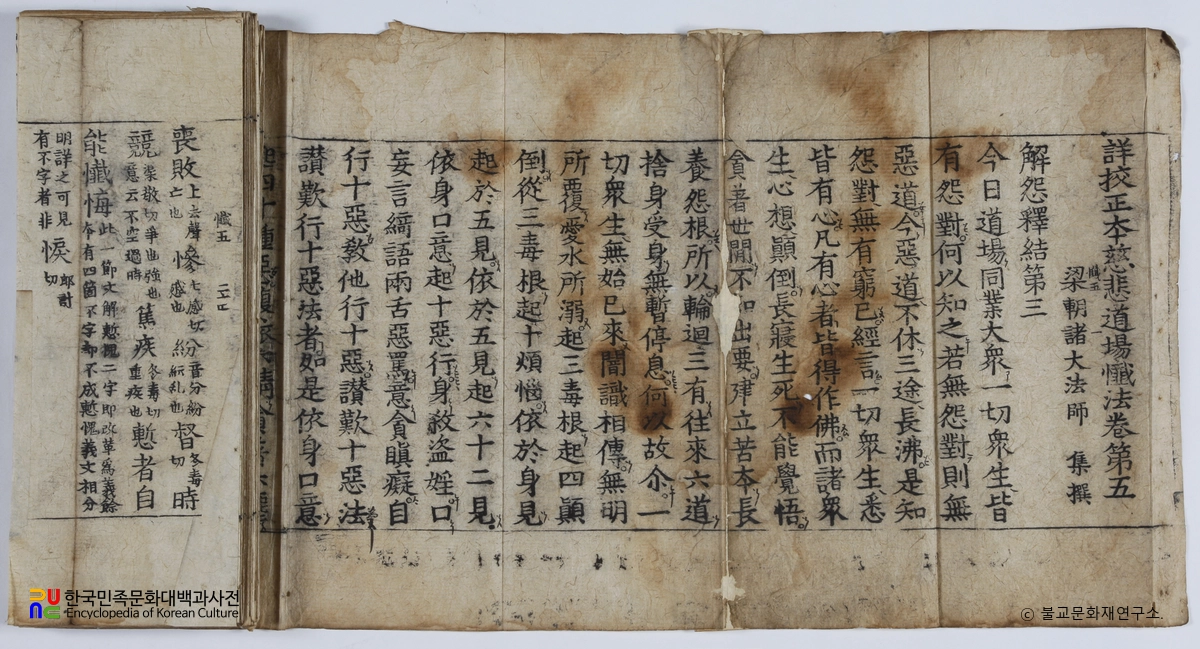 詳挍正本慈悲道場懺法卷第五
懺五
梁朝諸大法師 集撰
解怨釋結第三
今日道場同業大衆一切衆生皆
有怨對何以知之若無怨對則無
惡道今惡道不休三途長沸是知
怨對無有窮已經言一切衆生悉
皆有心凡有心者皆得作佛而諸衆
生心想顚倒長寢生死不能覺悟
貪著世間不知出要建立苦本長
養怨根所以輪迴三有往來六道
捨身受身無暫停息何以故尒一
切衆生無始已來闇識相傳無明
所覆愛水所溺起三毒根起四顚
倒從三毒根起十煩惱依於身見
起於五見依於五見起六十二見
依身口意起十惡行身殺盜婬口
妄言綺語兩舌惡罵意貪瞋癡自
行十惡敎他行十惡讃歎十惡法
讃歎行十惡法者如是依身口意
懺五
喪敗上去聲亡也 慘七感切慼也 紛 督冬毒切 時
競 焦 疾 慙者自
能懺悔此一節文解慙愧二字即改革爲義餘
今有四箇不字却不成慙愧義文相分
明詳之可見
有不字者非 悷郎計切
한국민족문화대백과사전
Encyclopedia of Korean Culture
ⓒ 불교문화재연구소.